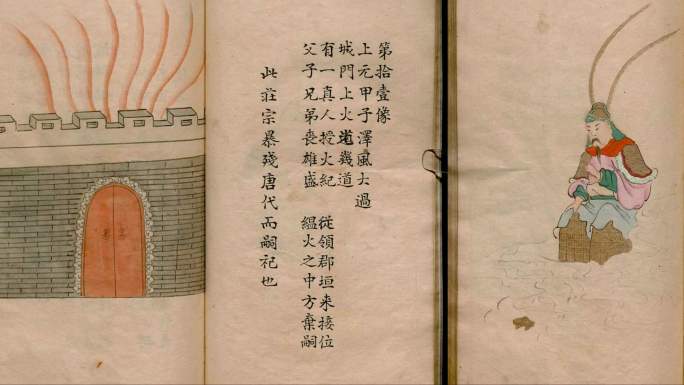 第拾壹像
上元甲子澤風大過
城門上火㷠幾道
有一真人授火紀　從領郡垣来接位
父子兄弟喪雄盛　緼火之中方棄嗣
此莊宗暴殘唐代而嗣祀也